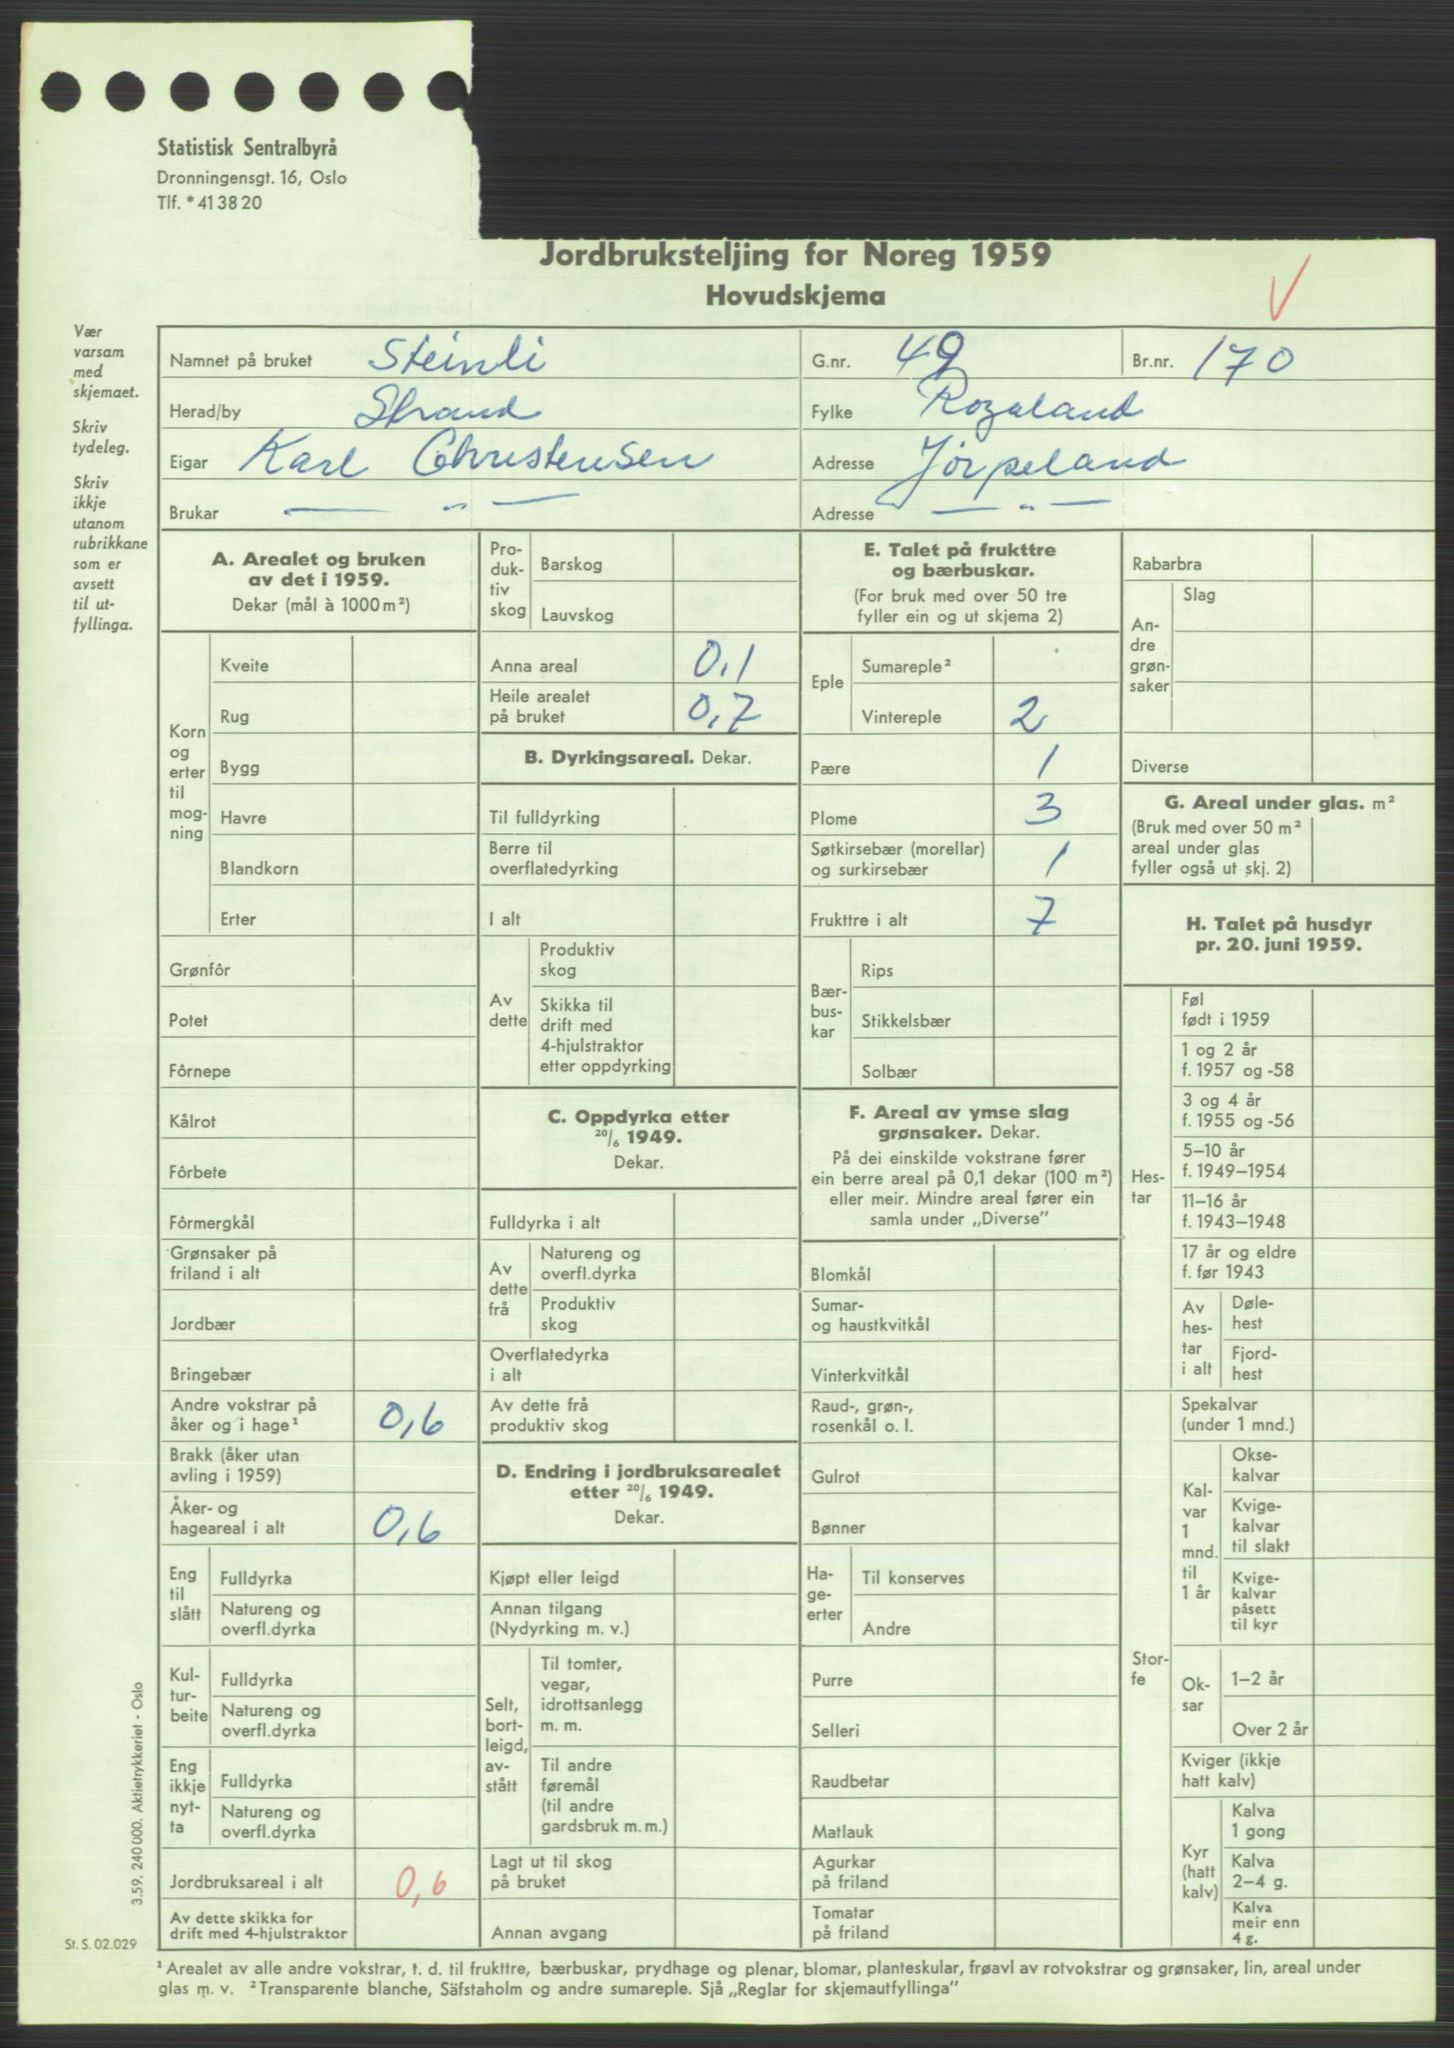 Statistisk Sentralbyrå
Dronningensgt. 16, Oslo
Tlf. * 41 38 20
Jordbruksteljing for Noreg 1959
Hovudskjema
Vær
varsam
med
skjemaet.
Skriv
tydeleg.
Skriv
ikkje
utanom
rubrikkane
som er
avsett
til ut-
fyllinga.
Namnet på bruket Steinli G.nr. 49 Br.nr. 170
Herad/by Strand Fylke Rogaland
Eigar Karl Christensen Adresse Jørpeland
Brukar — " — Adresse — " —
A. Arealet og bruken
av det i 1959.
Dekar (mål à 1000 m²)
Korn
og
erter
til
mog-
ning
Kveite
Rug
Bygg
Havre
Blandkorn
Erter
Grønfôr
Potet
Fôrnepe
Kålrot
Fôrbete
Fôrmergkål
Grønsaker på
friland i alt
Jordbær
Bringebær
Andre vokstrar på
åker og i hage¹ 0,6
Brakk (åker utan
avling i 1959)
Åker- og
hageareal i alt 0,6
Eng
til
slått
Fulldyrka
Natureng og
overfl.dyrka
Kul-
tur-
beite
Fulldyrka
Natureng og
overfl.dyrka
Eng
ikkje
nyt-
ta
Fulldyrka
Natureng og
overfl.dyrka
Jordbruksareal i alt 0,6
Av dette skikka for
drift med 4-hjulstraktor
Pro-
duk-
tiv
skog
Barskog
Lauvskog
Anna areal 0,1
Heile arealet
på bruket 0,7
B. Dyrkingsareal. Dekar.
Til fulldyrking
Berre til
overflatedyrking
I alt
Av
dette
Produktiv
skog
Skikka til
drift med
4-hjulstraktor
etter oppdyrking
C. Oppdyrka etter
20/6 1949.
Dekar.
Fulldyrka i alt
Av
dette
frå
Natureng og
overfl.dyrka
Produktiv
skog
Overflatedyrka
i alt
Av dette frå
produktiv skog
D. Endring i jordbruksarealet
etter 20/6 1949.
Dekar.
Kjøpt eller leigd
Annan tilgang
(Nydyrking m. v.)
Selt,
bort-
leigd,
av-
stått
Til tomter,
vegar,
idrottsanlegg
m. m.
Til andre
føremål
(til andre
gardsbruk m. m.)
Lagt ut til skog
på bruket
Annan avgang
E. Talet på frukttre
og bærbuskar.
(For bruk med over 50 tre
fyller ein og ut skjema 2)
Eple
Sumareple²
Vintereple 2
Pære 1
Plome 3
Søtkirsebær (morellar)
og surkirsebær 1
Frukttre i alt 7
Bær-
bus-
kar
Rips
Stikkelsbær
Solbær
F. Areal av ymse slag
grønsaker. Dekar.
På dei einskilde vokstrane fører
ein berre areal på 0,1 dekar (100 m²)
eller meir. Mindre areal fører ein
samla under „Diverse”
Blomkål
Sumar-
og haustkvitkål
Vinterkvitkål
Raud-, grøn-,
rosenkål o. l.
Gulrot
Bønner
Ha-
ge-
erter
Til konserves
Andre
Purre
Selleri
Raudbetar
Matlauk
Agurkar
på friland
Tomatar
på friland
Rabarbra
An-
dre
grøn-
saker
Slag
Diverse
G. Areal under glas. m²
(Bruk med over 50 m²
areal under glas
fyller også ut skj. 2)
H. Talet på husdyr
pr. 20. juni 1959.
Hes-
tar
Føl
født i 1959
1 og 2 år
f. 1957 og -58
3 og 4 år
f. 1955 og -56
5–10 år
f. 1949–1954
11–16 år
f. 1943–1948
17 år og eldre
f. før 1943
Av
hes-
tar
i alt
Døle-
hest
Fjord-
hest
Stor-
fe
Spekalvar
(under 1 mnd.)
Kal-
var
1
mnd.
til
1 år
Okse-
kalvar
Kvige-
kalvar
til slakt
Kvige-
kalvar
påsett
til kyr
Ok-
sar
1–2 år
Over 2 år
Kviger (ikkje
hatt kalv)
Kyr
(hatt
kalv)
Kalva
1 gong
Kalva
2–4 g.
Kalva
meir enn
4 g.
3.59. 240 000. Aktietrykkeriet - Oslo
St. S. 02.029
¹ Arealet av alle andre vokstrar, t. d. til frukttre, bærbuskar, prydhage og plenar, blomar, planteskular, frøavl av rotvokstrar og grønsaker, lin, areal under
glas m. v. ² Transparente blanche, Säfstaholm og andre sumareple. Sjå „Reglar for skjemautfyllinga”